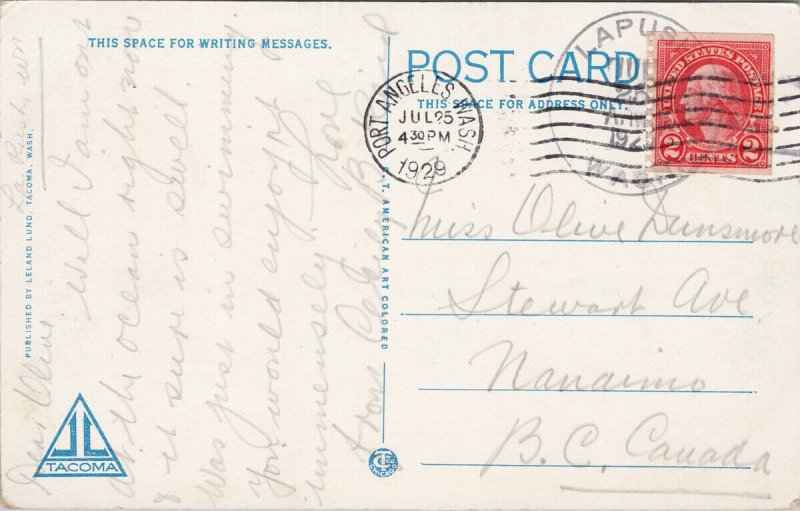 THIS SPACE FOR WRITING MESSAGES.
POST CARD
THIS SPACE FOR ADDRESS ONLY.
PORT ANGELES, WASH.
JUL 25
4 30 PM
1929
LAPUS
WASH
UNITED STATES POSTAGE
2 CENTS 2
Miss Olive Dunsmore
Stewart Ave.
Nanaimo
B.C. Canada
La Push Wn
Dear Olive
Well I am out
at the ocean right now
& it sure is swell.
Was just in swimming.
You would enjoy it
immensely. Love
from
PUBLISHED BY LELAND LUND, TACOMA, WASH.
C. T. AMERICAN ART COLORED
TACOMA
CHICAGO